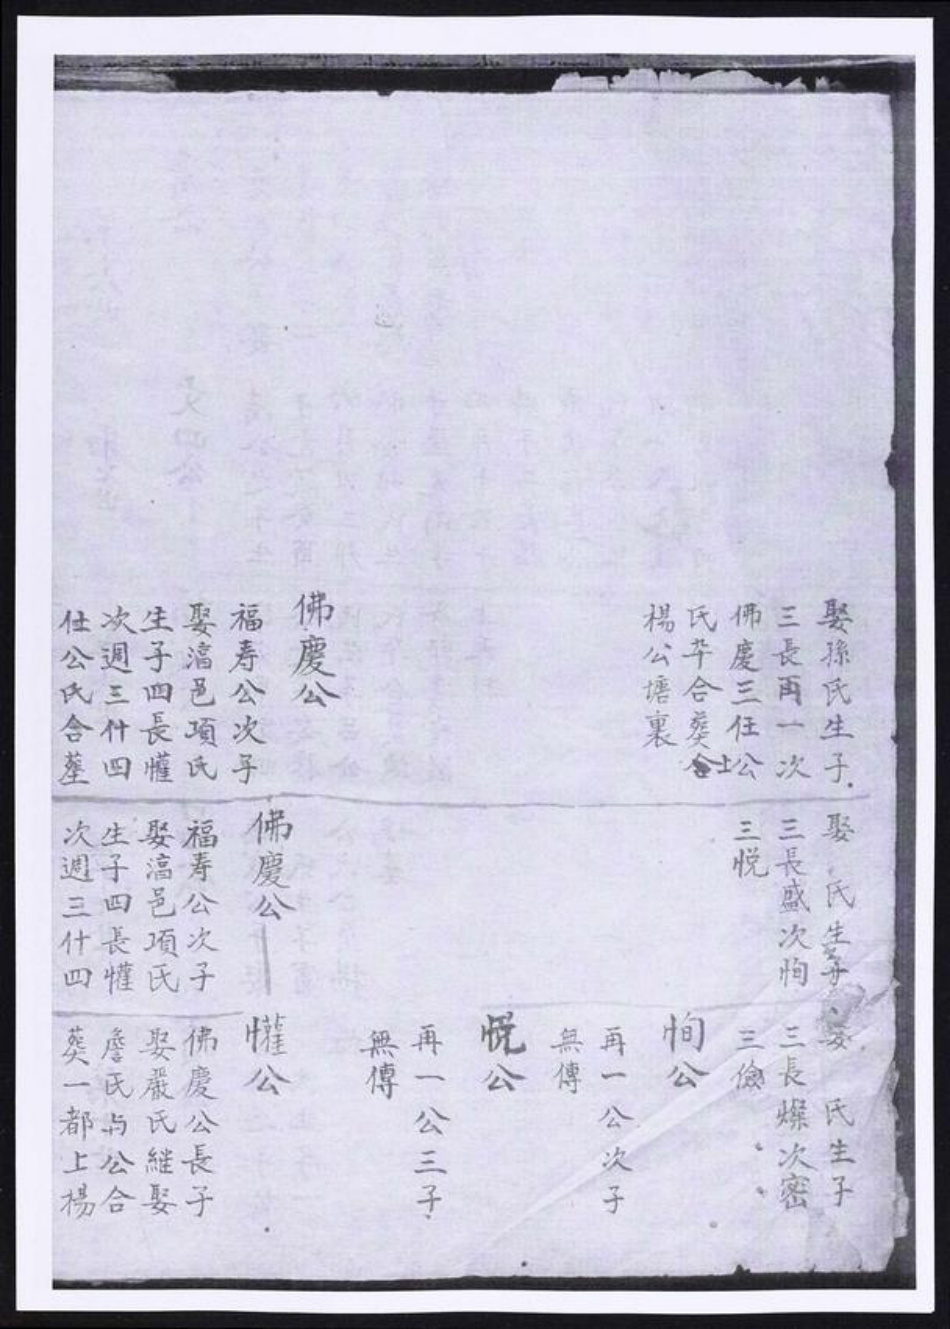 娶孫氏生子
三長再一次
佛慶三任公
氏卒合葬仝土
楊公塘裏
佛慶公
福寿公次子
娶滈邑項氏
生子四長懽
次週三什四
仕公氏合墓
娶 氏生子
三長盛次恂
三悦
佛慶公
福寿公次子
娶滈邑項氏
生子四長懽
次週三什四
娶 氏生子
三長燦次密
三儉
恂公
再一公次子
無傳
悦公
再一公三子
無傳
懽公
佛慶公長子
娶嚴氏継娶
詹氏与公合
葬一都上楊